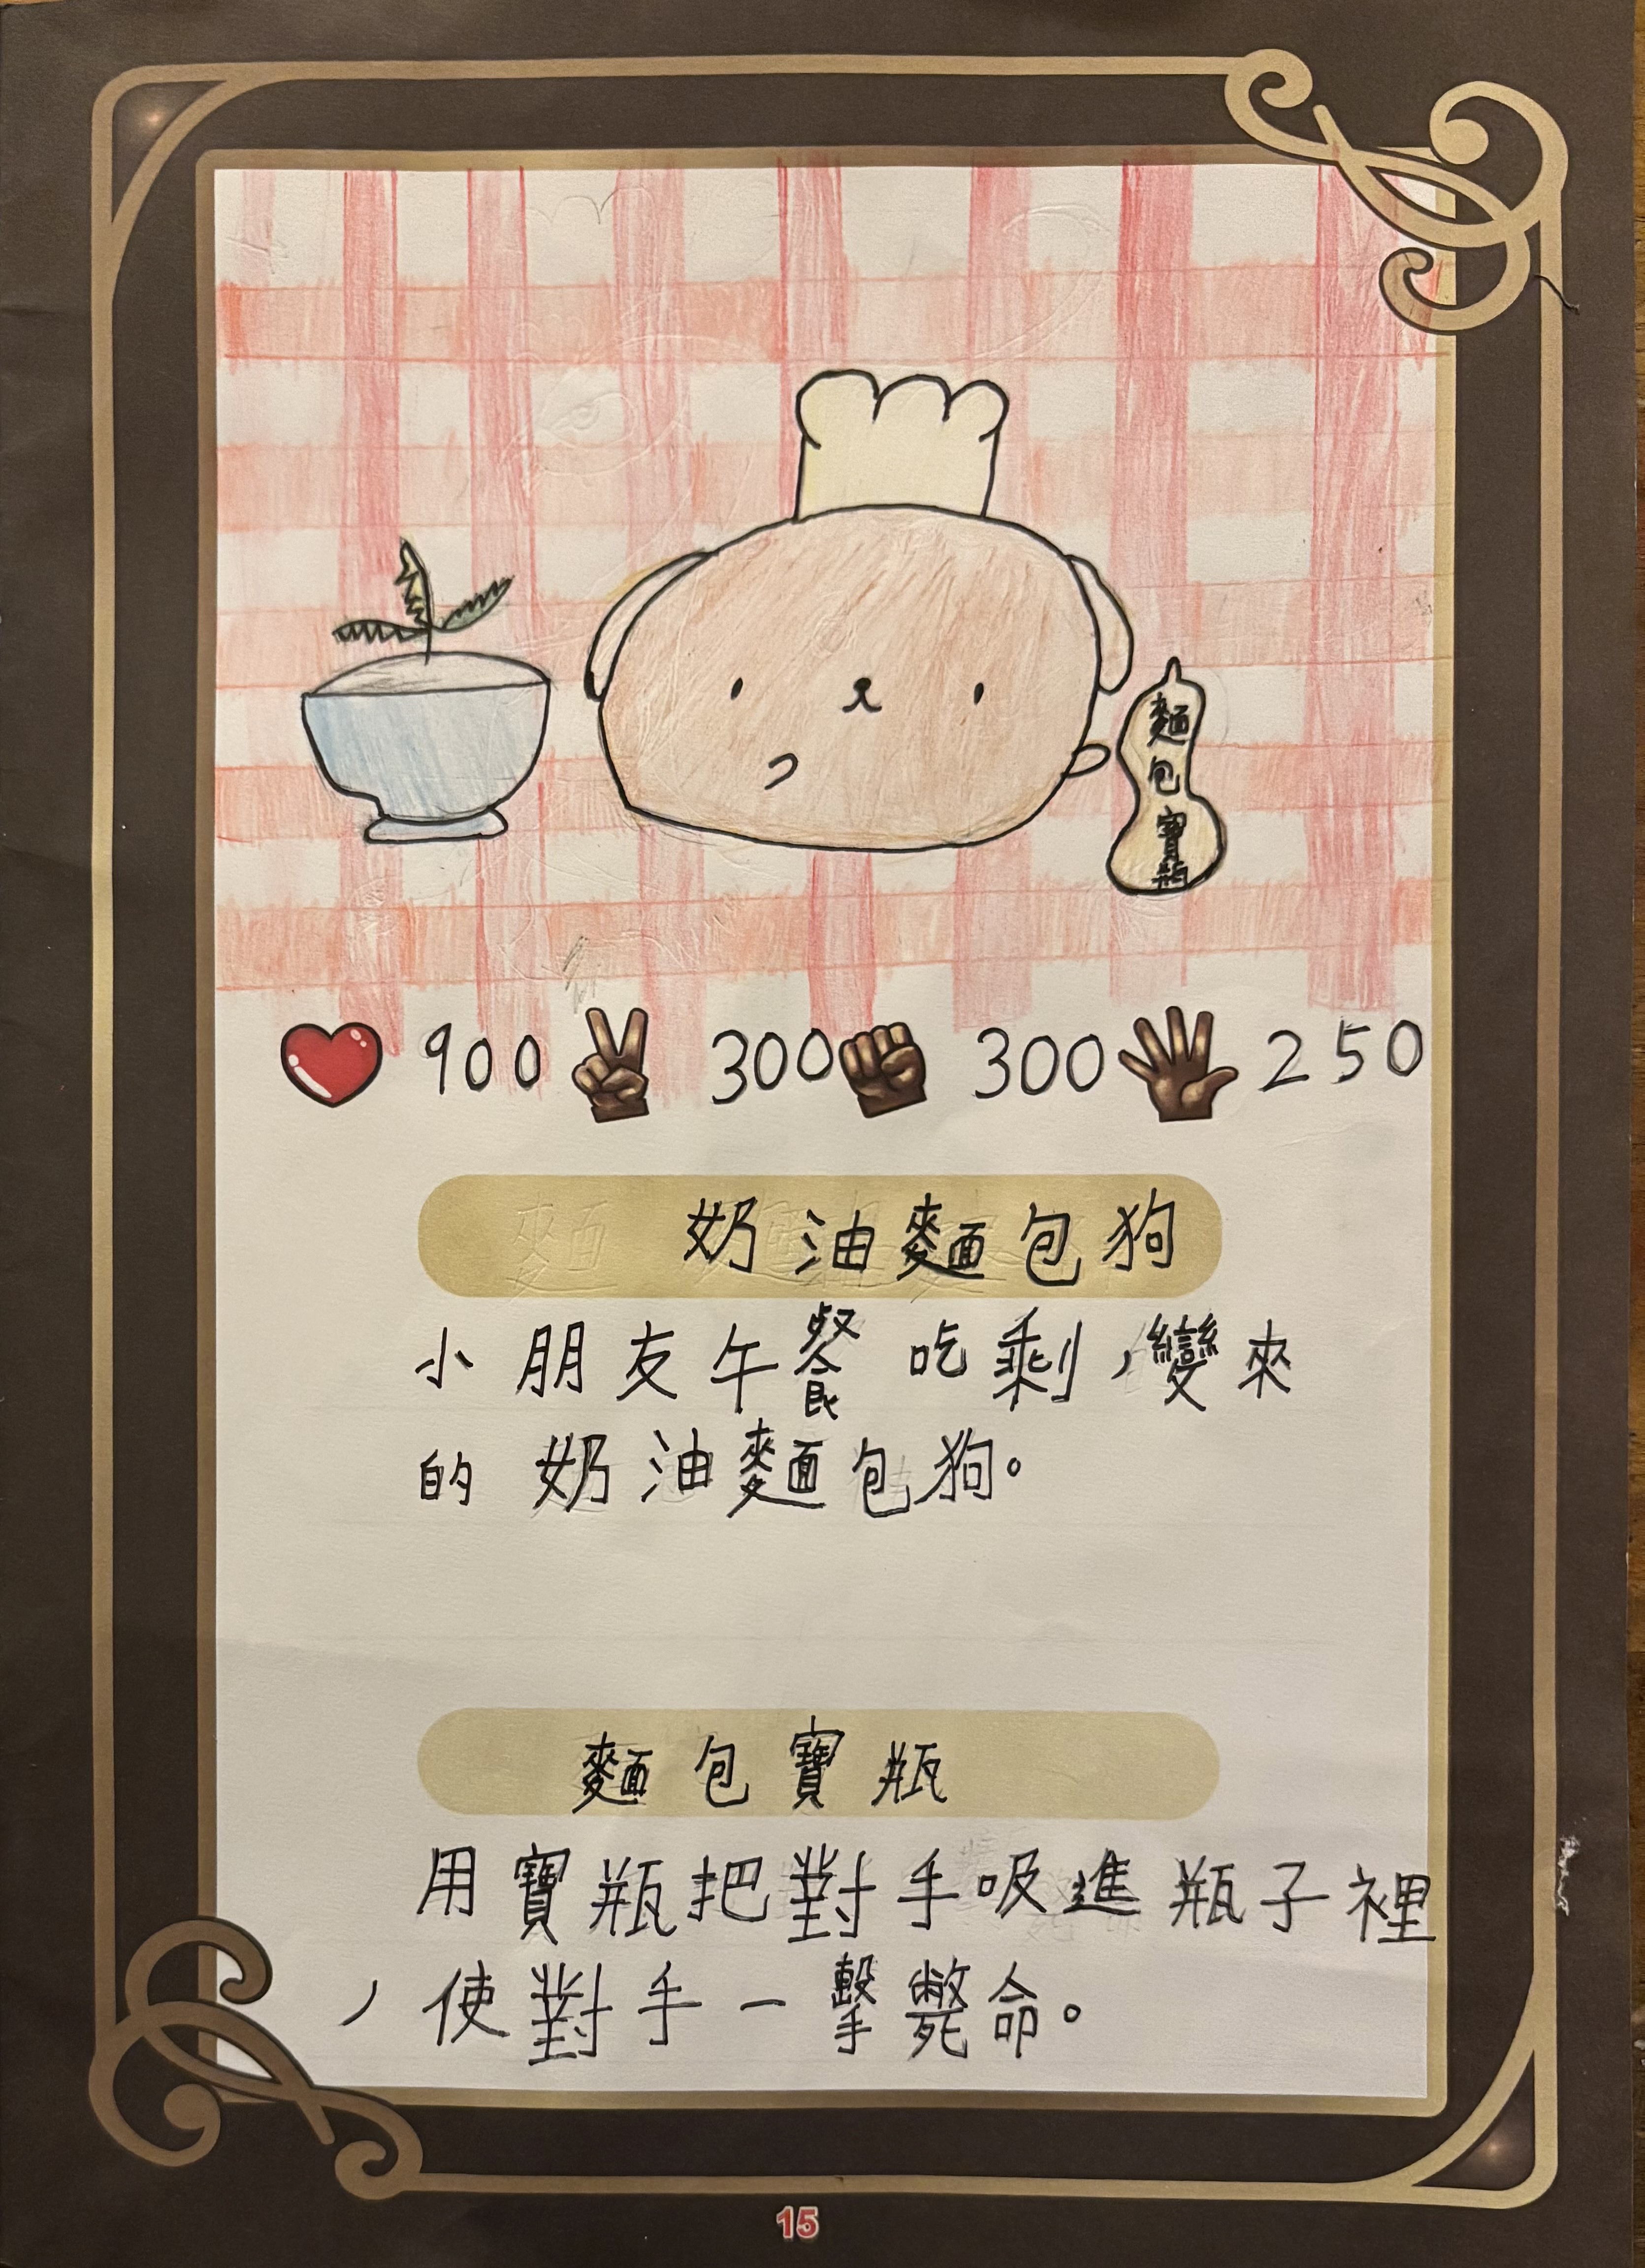 麵
包
寶
瓶
900 300 300 250
奶油麵包狗
小朋友午餐吃剩，變來
的奶油麵包狗。
麵包寶瓶
用寶瓶把對手吸進瓶子裡
，使對手一擊斃命。
15